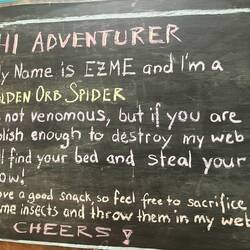 HI ADVENTURER
My Name is EZME and I'm a
GOLDEN ORB SPIDER
not venomous, but if you are
enough to destroy my web
find your bed and steal your
a good snack, so feel free to sacrifice
insects and throw them in my web
CHEERS!